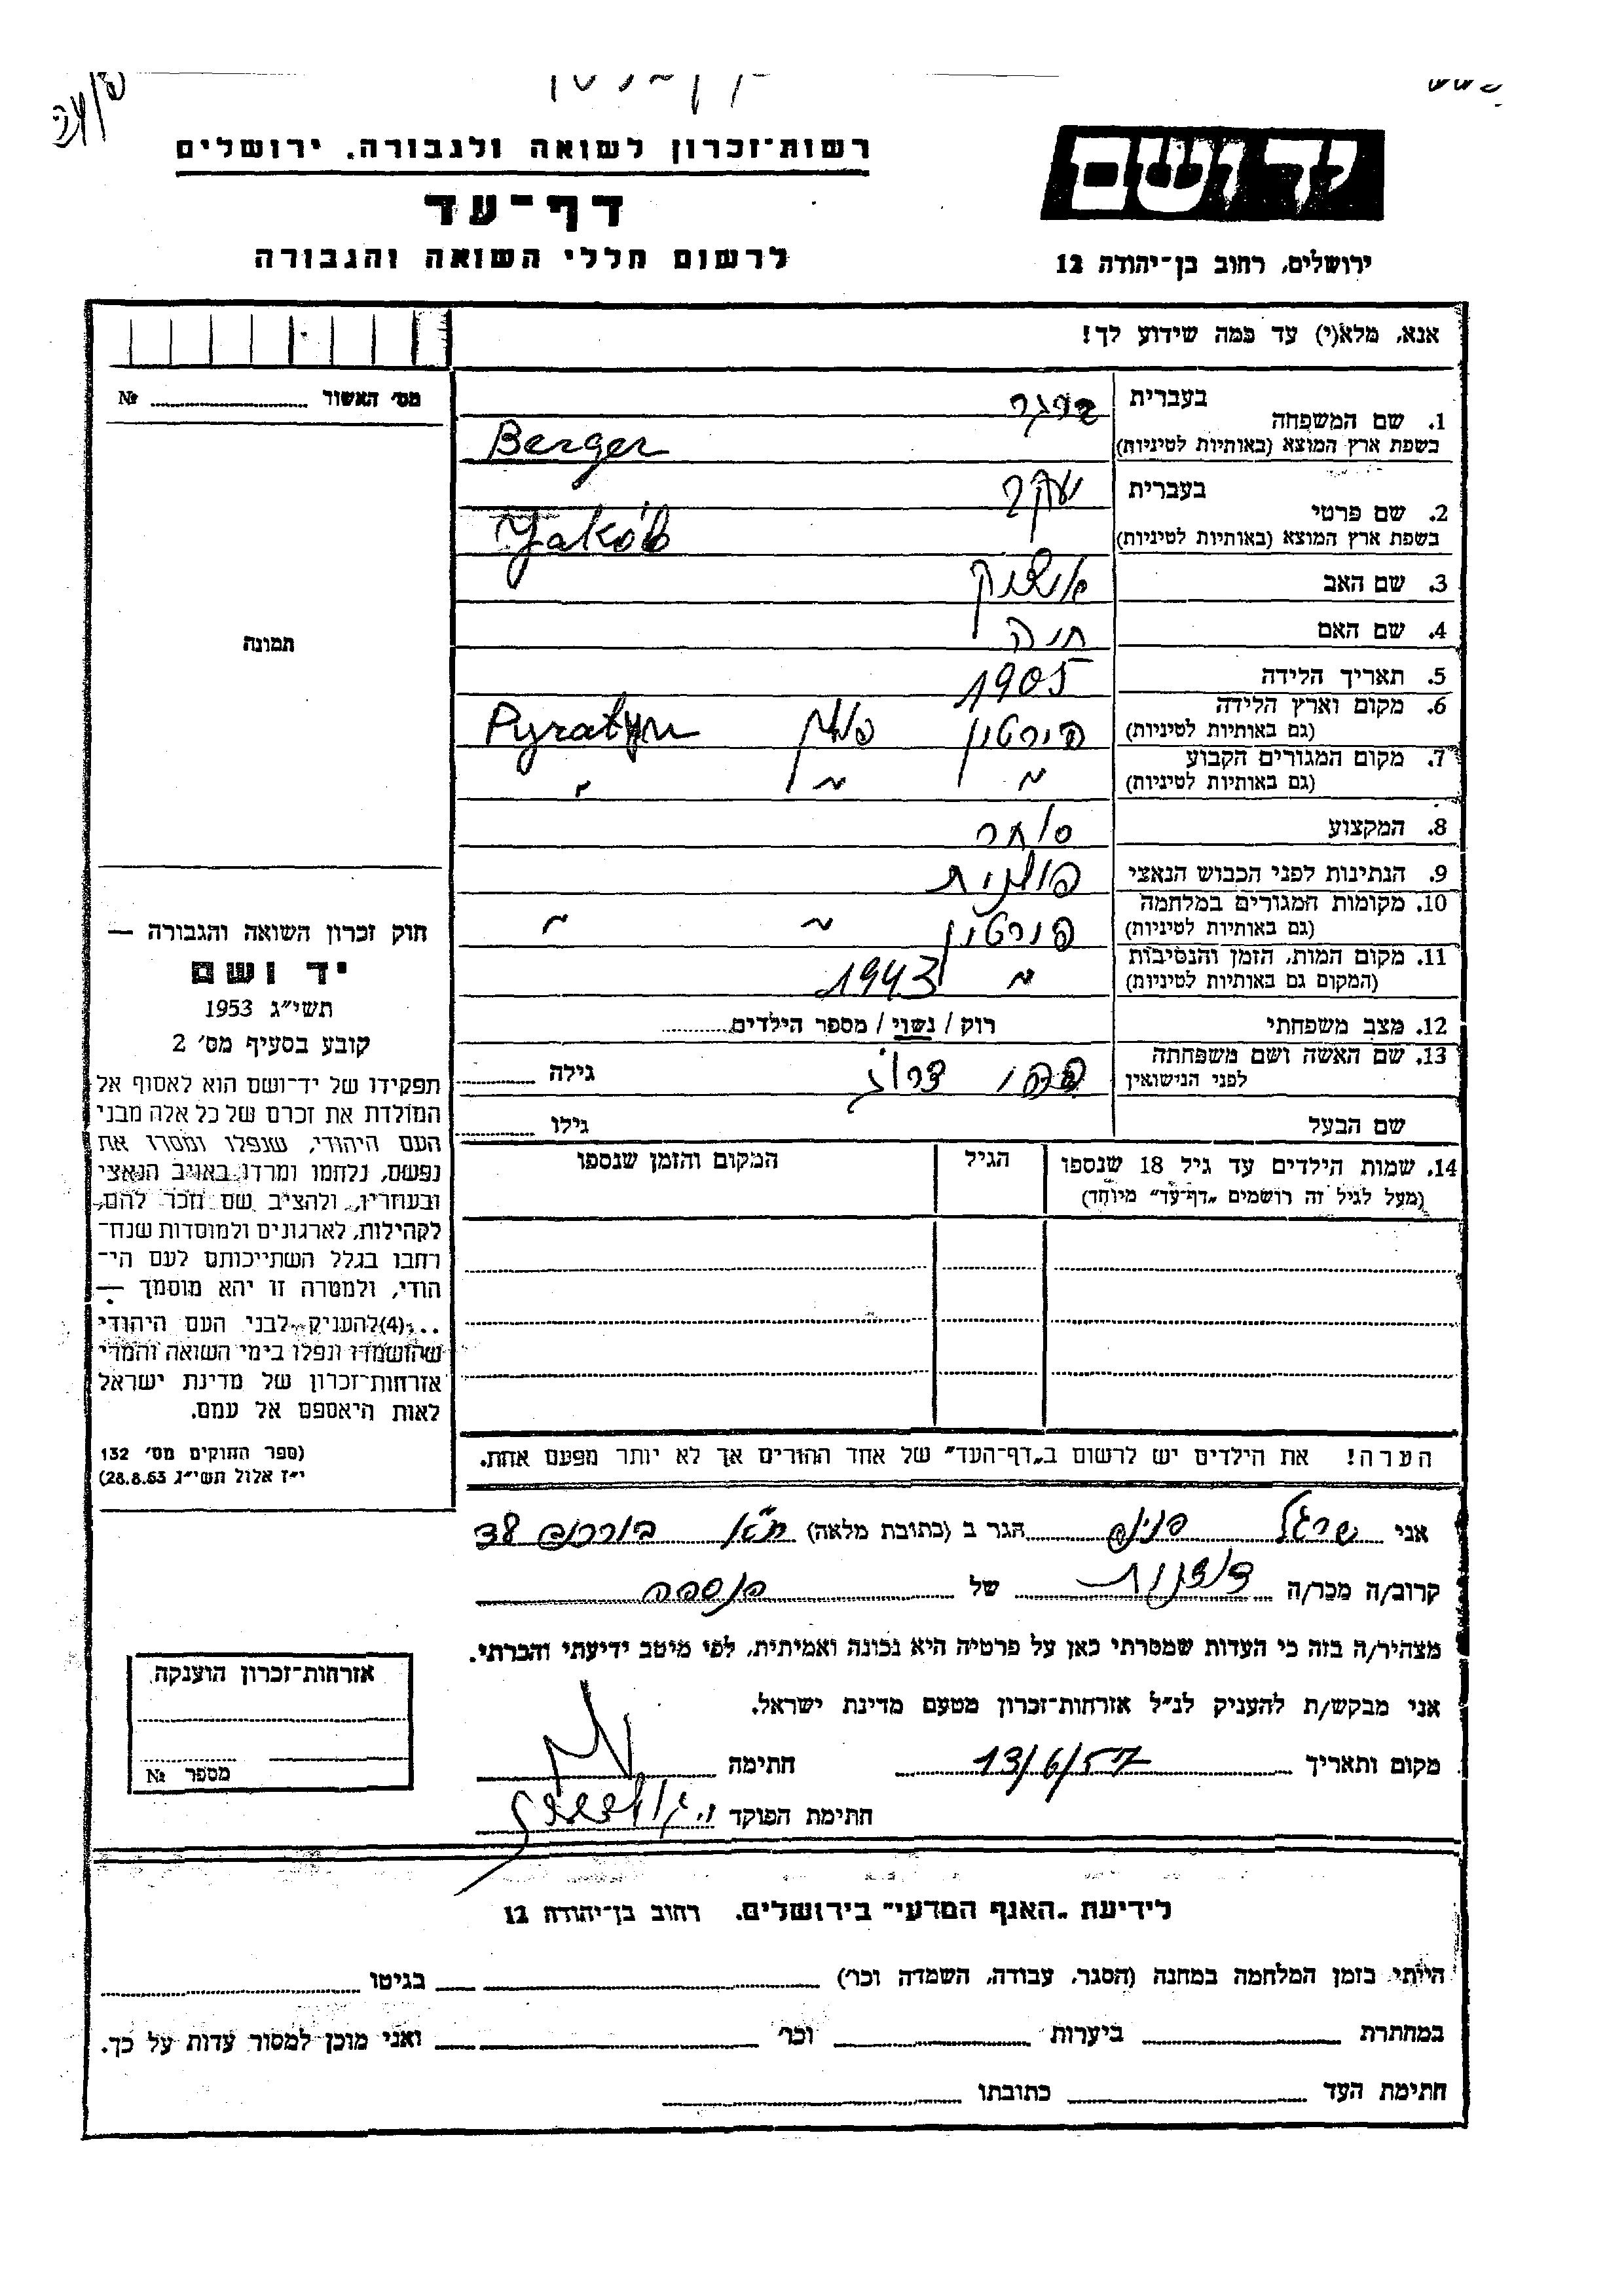 רשות־זכרון לשואה ולגבורה, ירושלים
יד ושם
דף־עד
לרשום חללי השואה והגבורה
ירושלים, רחוב בן־יהודה 12
אנא, מלא(י) עד כמה שידוע לך!
מס׳ האשור № ........
בעברית ברגר
1. שם המשפחה
בשפת ארץ המוצא (באותיות לטיניות) Berger
בעברית יעקב
2. שם פרטי
בשפת ארץ המוצא (באותיות לטיניות) Jakób
3. שם האב איציק
4. שם האם חיה
5. תאריך הלידה 1905
6. מקום וארץ הלידה פירטין פולין Pyratyn
(גם באותיות לטיניות)
7. מקום המגורים הקבוע " " "
(גם באותיות לטיניות)
8. המקצוע סוחר
9. הנתינות לפני הכבוש הנאצי פולנית
10. מקומות המגורים במלחמה פירטין " "
(גם באותיות לטיניות)
11. מקום המות, הזמן והנסיבות " 1943
(המקום גם באותיות לטיניות)
12. מצב משפחתי רוק / נשוי / מספר הילדים........
13. שם האשה ושם משפחתה גילה ........
לפני הנישואין
שם הבעל גילו ........
14. שמות הילדים עד גיל 18 שנספו הגיל המקום והזמן שנספו
(מעל לגיל זה רושמים „דף־עד" מיוחד)
הערה! את הילדים יש לרשום ב„דף־העד" של אחד ההורים אך לא יותר מפעם אחת.
תמונה
חוק זכרון השואה והגבורה —
יד ושם
תשי״ג 1953
קובע בסעיף מס׳ 2
תפקידו של יד־ושם הוא לאסוף אל
המולדת את זכרם של כל אלה מבני
העם היהודי, שנפלו ומסרו את
נפשם, נלחמו ומרדו באויב הנאצי
ובעוזריו, ולהציב שם וזכר להם,
לקהילות, לארגונים ולמוסדות שנח־
רבו בגלל השתייכותם לעם הי־
הודי, ולמטרה זו יהא מוסמך —
...(4)להעניק לבני העם היהודי
שהושמדו ונפלו בימי השואה והמרי
אזרחות־זכרון של מדינת ישראל
לאות היאספם אל עמם.
(ספר החוקים מס׳ 132
י״ז אלול תשי״ג 28.8.53)
אני פנינה הגר ב (כתובת מלאה) ת״א 38
קרוב/ה מכר/ה של הנספה
מצהיר/ה בזה כי העדות שמסרתי כאן על פרטיה היא נכונה ואמיתית, לפי מיטב ידיעתי והכרתי.
אני מבקש/ת להעניק לנ״ל אזרחות־זכרון מטעם מדינת ישראל.
מקום ותאריך 13/6/57 חתימה
חתימת הפוקד
אזרחות־זכרון הוענקה
מספר №
לידיעת „האגף המדעי" בירושלים. רחוב בן־יהודה 12
הייתי בזמן המלחמה במחנה (הסגר, עבודה, השמדה וכו׳) ........ בגיטו ........
במחתרת ........ ביערות ........ וכו׳ ........ ואני מוכן למסור עדות על כך.
חתימת העד ........ כתובתו ........